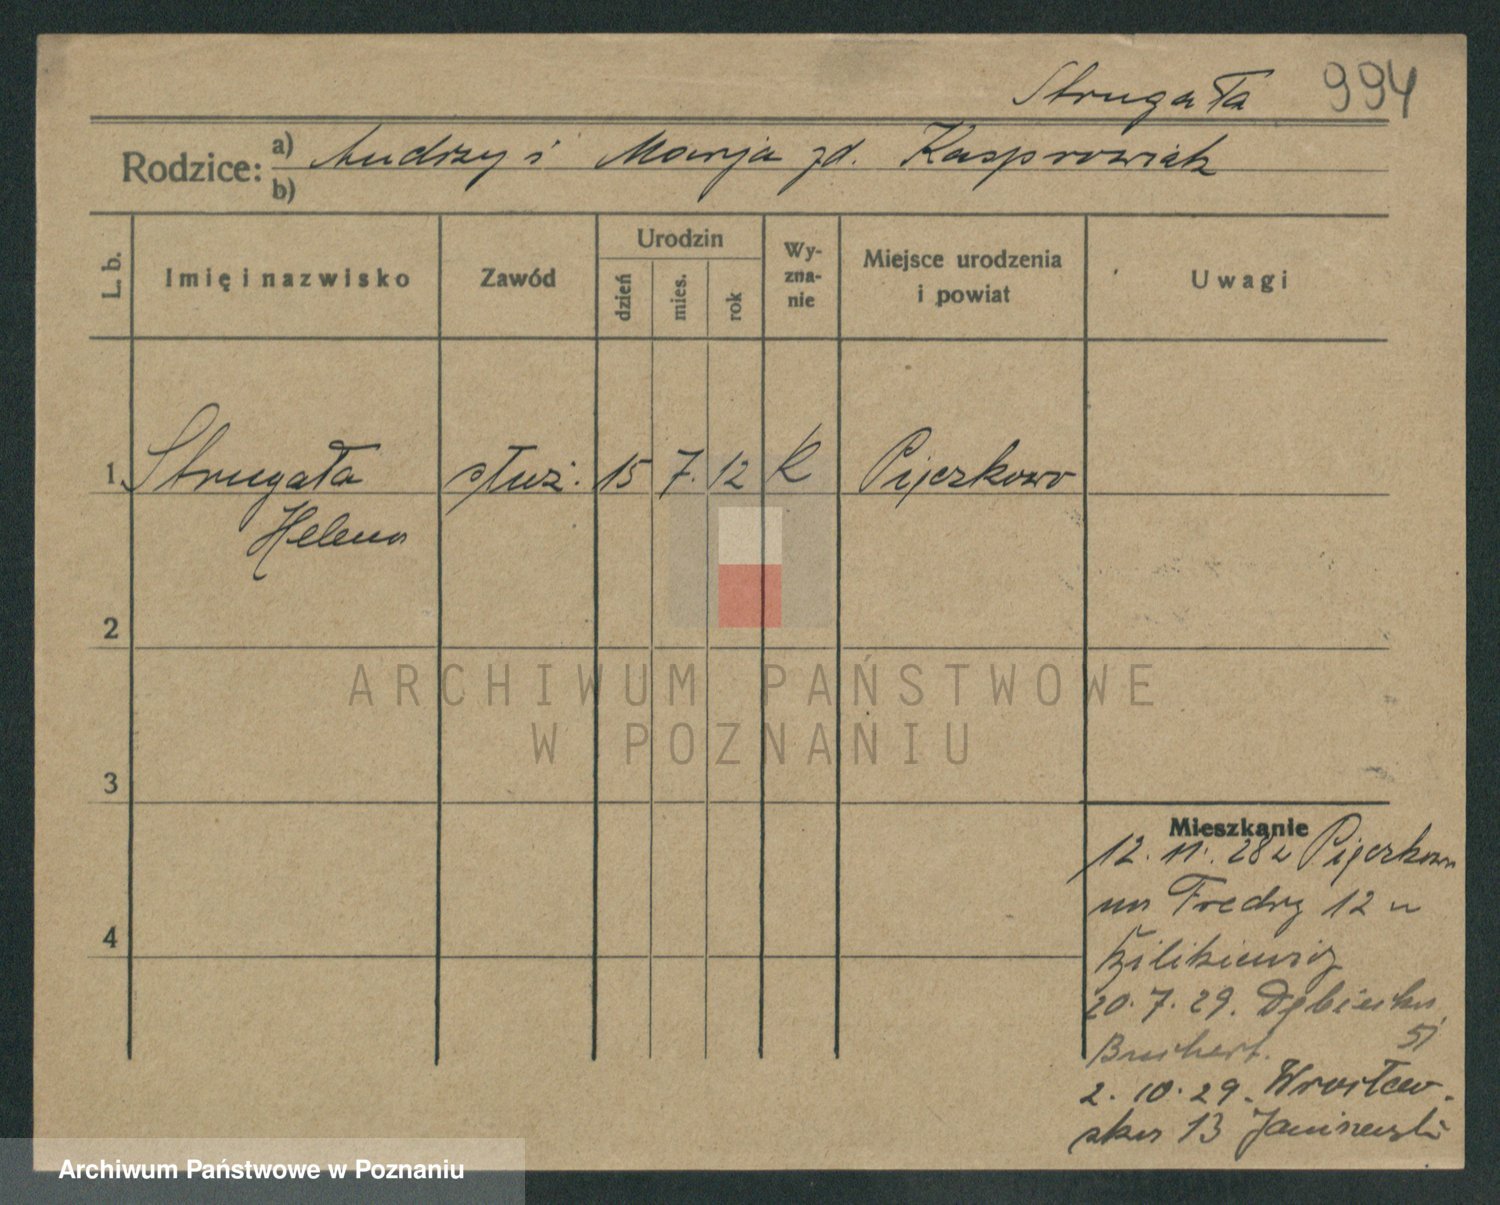 Strugała 994
Rodzice: a) Andrzej i Marja zd. Kasprowiak
b)
L. b.
Imię i nazwisko
Zawód
Urodzin
dzień
mies.
rok
Wy-
zna-
nie
Miejsce urodzenia
i powiat
Uwagi
1. Strugała służ. 15 7. 12 K Pijczkowo
Helena
2
3
4
ARCHIWUM PAŃSTWOWE
W POZNANIU
Mieszkanie
12. 11. 28 z Pijczkowa
na Fredry 12 u
20. 7. 29. Dębińska
51
2. 10. 29. Wrocław-
ska 13 Janiszewski
Archiwum Państwowe w Poznaniu